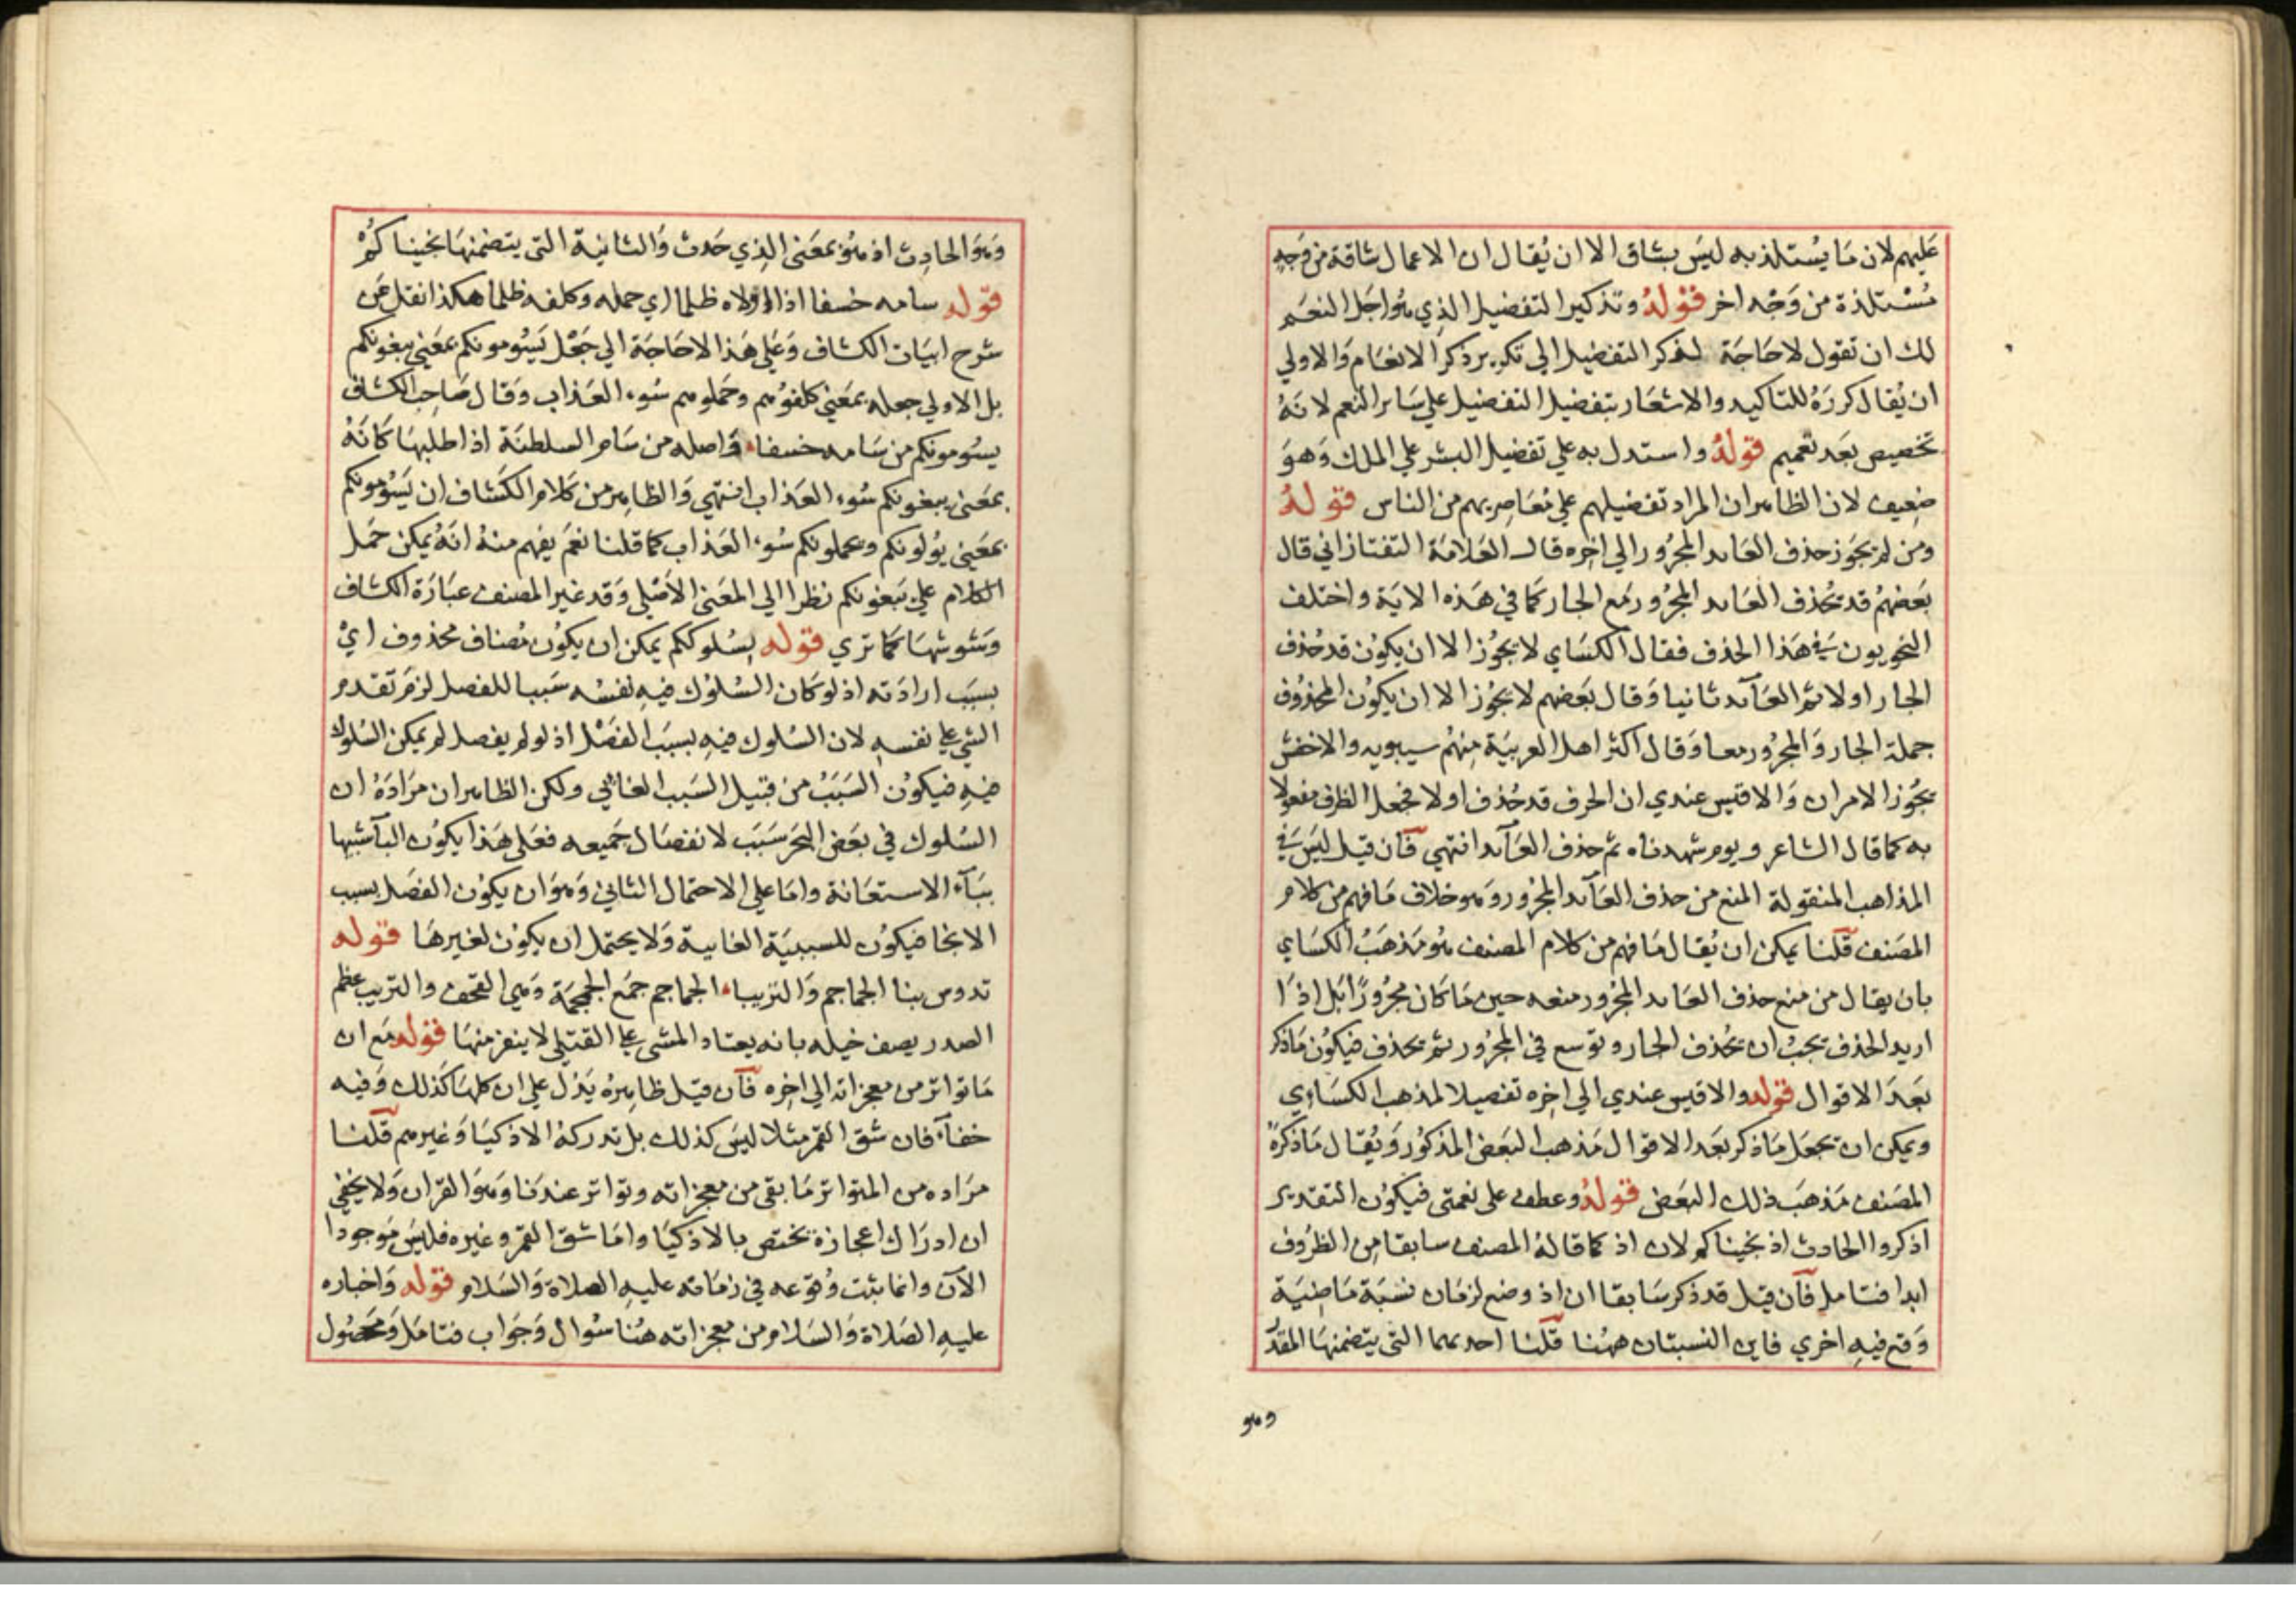 عليهم لان ما يستلذ به ليس بشاق الا ان يقال ان الاعمال شاقة من وجه
مستلذة من وجه اخر قوله وتذكير التفضيل الذي هو اجل النعم
لك ان تقول لا حاجة لذكر التفضيل الي تكرير ذكر الانعام والاولي
ان يقال كرره للتاكيد والاشعار بتفضيل التفضيل علي ساير النعم لانه
تخصيص بعد تعميم قوله واستدل به علي تفضيل البشر علي الملك وهو
ضعيف لان الظاهر ان المراد تفضيلهم علي معاصريهم من الناس قوله
ومن لم يجوز حذف العايد المجرور الي اخره قال العلامة التفتازاني قال
بعضهم قد يحذف العايد المجرور مع الجار كما في هذه الاية واختلف
النحويون في هذا الحذف فقال الكساي لا يجوز الا ان يكون قد حذف
الجار اولا ثم العآيد ثانيا وقال بعضهم لا يجوز الا ان يكون المحذوف
جملة الجار والمجرور معا وقال اكثر اهل العربية منهم سيبويه والاخفش
يجوز الامران والاقيس عندي ان الحرف قد حذف اولا فجعل الظرف مفعولا
به كما قال الشاعر ويوم شهدناه ثم حذف العآيد انتهي فآن قيل ليس في
المذاهب المنقولة المنع من حذف العآيد المجرور وهو خلاف ما فهم من كلام
المصنف قلنا يمكن ان يقال ما فهم من كلام المصنف هو مذهب الكساي
بان يقال من منع حذف العايد المجرور منعه حين ما كان مجرورا بل اذا
اريد الحذف يجب ان يحذف الجار وتوسع في المجرور ثم يحذف فيكون ما ذكر
بعد الاقوال قوله والاقيس عندي الي اخره تفصيلا لمذهب الكساءي
ويمكن ان تجعل ما ذكر بعد الاقوال مذهب البعض المذكور ويقال ما ذكره
المصنف مذهب ذلك البعض قوله وعطف على نعمتى فيكون التقدير
اذكروا الحادث اذ نجيناكم لان اذ كما قاله المصنف سابقا من الظروف
ابدا فتامل فآن قيل قد ذكر سابقا ان اذ وضع لزمان نسبة ماضية
وقع فيه اخري فاين النسبتان ههنا قلنا احديهما التى يتضمنها المقدر
وهو
وهو الحادث اذ هو بمعنى الذي حدث والثانية التى يتضمنها نجيناكم
قوله سامه خسفا اذا اولاه ظلما اي حمله وكلفه ظلما هكذا نقل عن
شرح ابيات الكشاف وعلي هذا لا حاجة الي جعل يسومونكم بمعني يبغونكم
بل الاولي جعله بمعني كلفوهم وحملوهم سوء العذاب وقال صاحب الكشاف
يسومونكم من سامه خسفا واصله من سام السلطنة اذا طلبها كانه
بمعنى يبغونكم سوء العذاب انتهي والظاهر من كلام الكشاف ان يسومونكم
بمعني يولونكم ويحملونكم سوء العذاب كما قلنا نعم يفهم منه انه يمكن حمل
الكلام علي يبغونكم نظرا الي المعنى الاصلي وقد غير المصنف عبارة الكشاف
وشوشها كما تري قوله بسلوككم يمكن ان يكون مضاف محذوف اي
بسبب ارادته اذ لو كان السلوك فيه لنفسه سببا للفصل لزم تقدم
الشي علي نفسه لان السلوك فيه بسبب الفصل اذ لو لم يفصل لم يمكن السلوك
فيه فيكون السبب من قبيل السبب الغائي ولكن الظاهر ان مراده ان
السلوك في بعض البحر سبب لانفصال جميعه فعلى هذا يكون البآ شبيها
ببآء الاستعانة واما علي الاحتمال الثاني وهو ان يكون الفصل بسبب
الانجا فيكون للسببية الغايية ولا يحتمل ان يكون لغيرها قوله
تدوس بنا الجماجم والتريبا الجماجم جمع الجمجمة وهي القحف والتريب عظم
الصدر يصف خيله بانه يعتاد المشي علي القتلي لا ينفر منها قوله مع ان
ما تواتر من معجزاته الي اخره فآن قيل ظاهره يدل علي ان كلها كذلك وفيه
خفآء فان شق القمر مثلا ليس كذلك بل تدركه الاذكيا وغيرهم قلنا
مراده من المتواتر ما بقي من معجزاته وتواتر عندنا وهو القران ولا يخفي
ان ادراك اعجازه يختص بالاذكيا واما شق القمر وغيره فليس موجودا
الآن وانما يثبت وقوعه في زمانه عليه الصلاة والسلام قوله واخباره
عليه الصلاة والسلام من معجزاته هنا سوال وجواب فتامل ومحصول